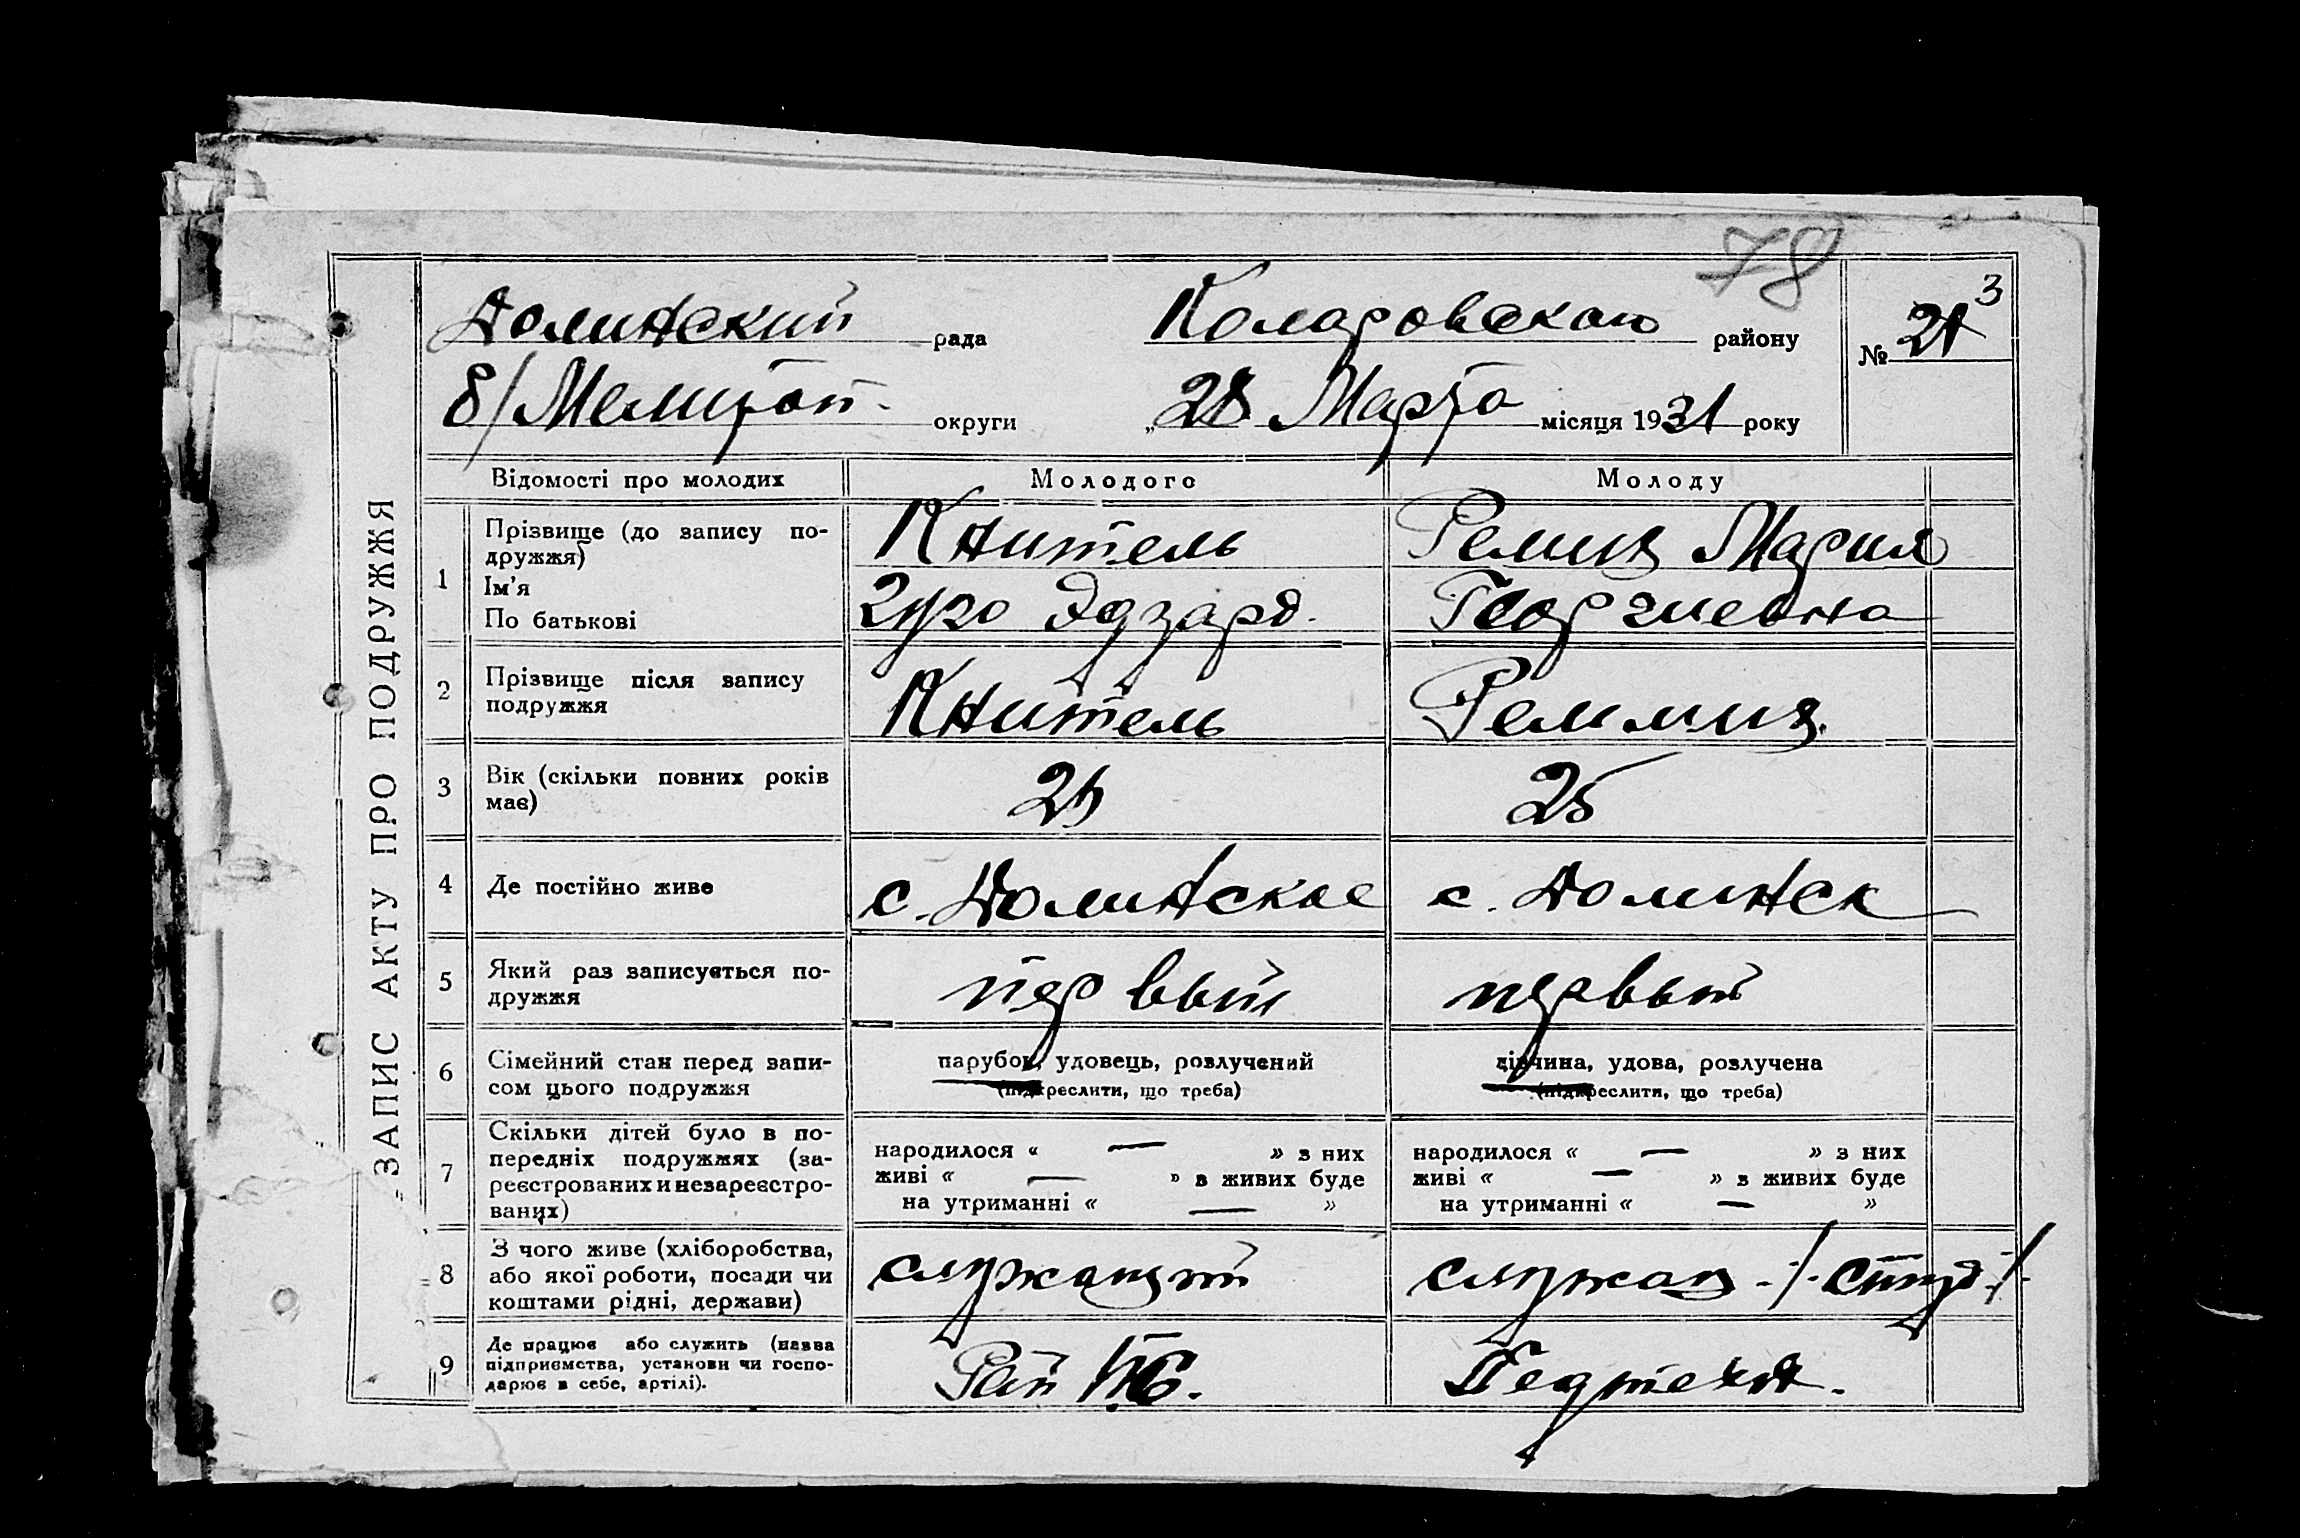 78
ЗАПИС АКТУ ПРО ПОДРУЖЖЯ
Долинский рада Коларовского району № 21 3
б/Мелитоп. округи „28 Марта місяця 1931 року
Відомості про молодих Молодого Молоду
1 Прізвище (до запису по-
дружжя)
Ім'я
По батькові
Книтель Ремих Мария
Гуго Эдуард. Георгиевна
2 Прізвище після запису
подружжя
Книтель
3 Вік (скільки повних років
має)
25
4 Де постійно живе с. Долинское с. Долинск
5 Який раз записується по-
дружжя
первый первый
6 Сімейний стан перед запи-
сом цього подружжя
парубок, удовець, розлучений
(підкреслити, що треба)
дівчина, удова, розлучена
(підкреслити, що треба)
7 Скільки дітей було в по-
передніх подружжях (за-
реєстрованих и незареєстро-
ваних)
народилося « — » з них
живі « — » з живих буде
на утриманні « — »
народилося « — » з них
живі « — » з живих буде
на утриманні « — »
8 З чого живе (хліборобства,
або якої роботи, посади чи
коштами рідні, держави)
служащий служащ - /студ./
9 Де працює або служить (назва
підприємства, установи чи госпо-
дарює в себе, артілі).
Рай Педтехн.